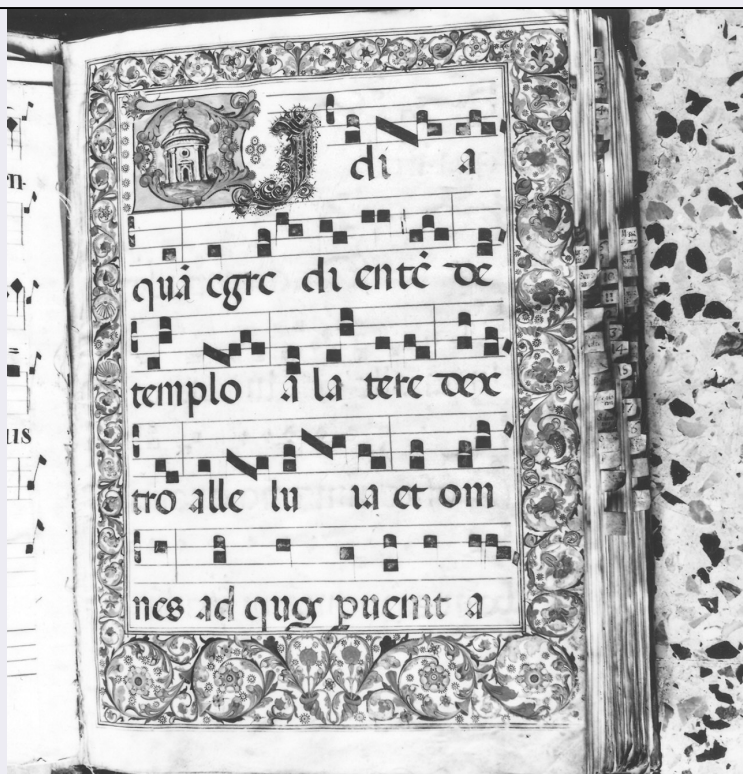 VI di a
quā egre di entē de
templo a la tere dex
tro alle lu ia et om
nes ad quos puenit a
n.
us